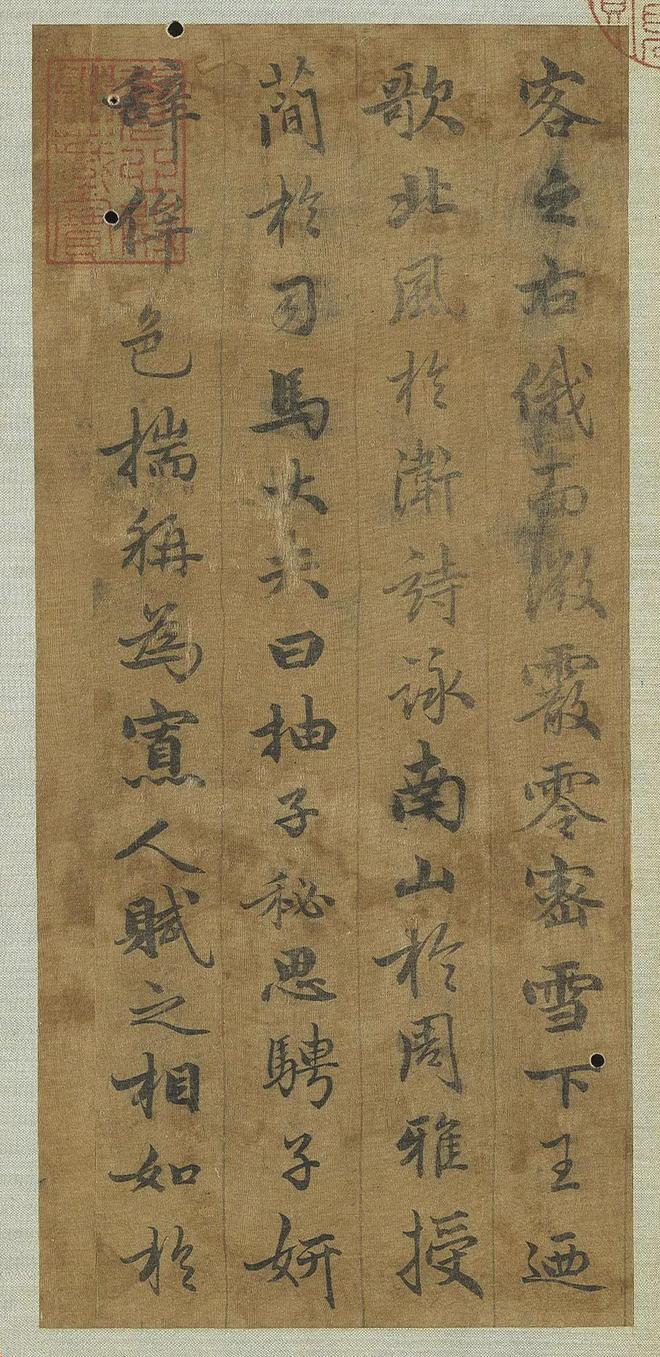 客之右俄而微霰零密雪下王迺
歌北風於衛詩詠南山於周雅授
簡於司馬大夫曰抽子秘思騁子妍
辭侔色揣稱為寡人賦之相如於